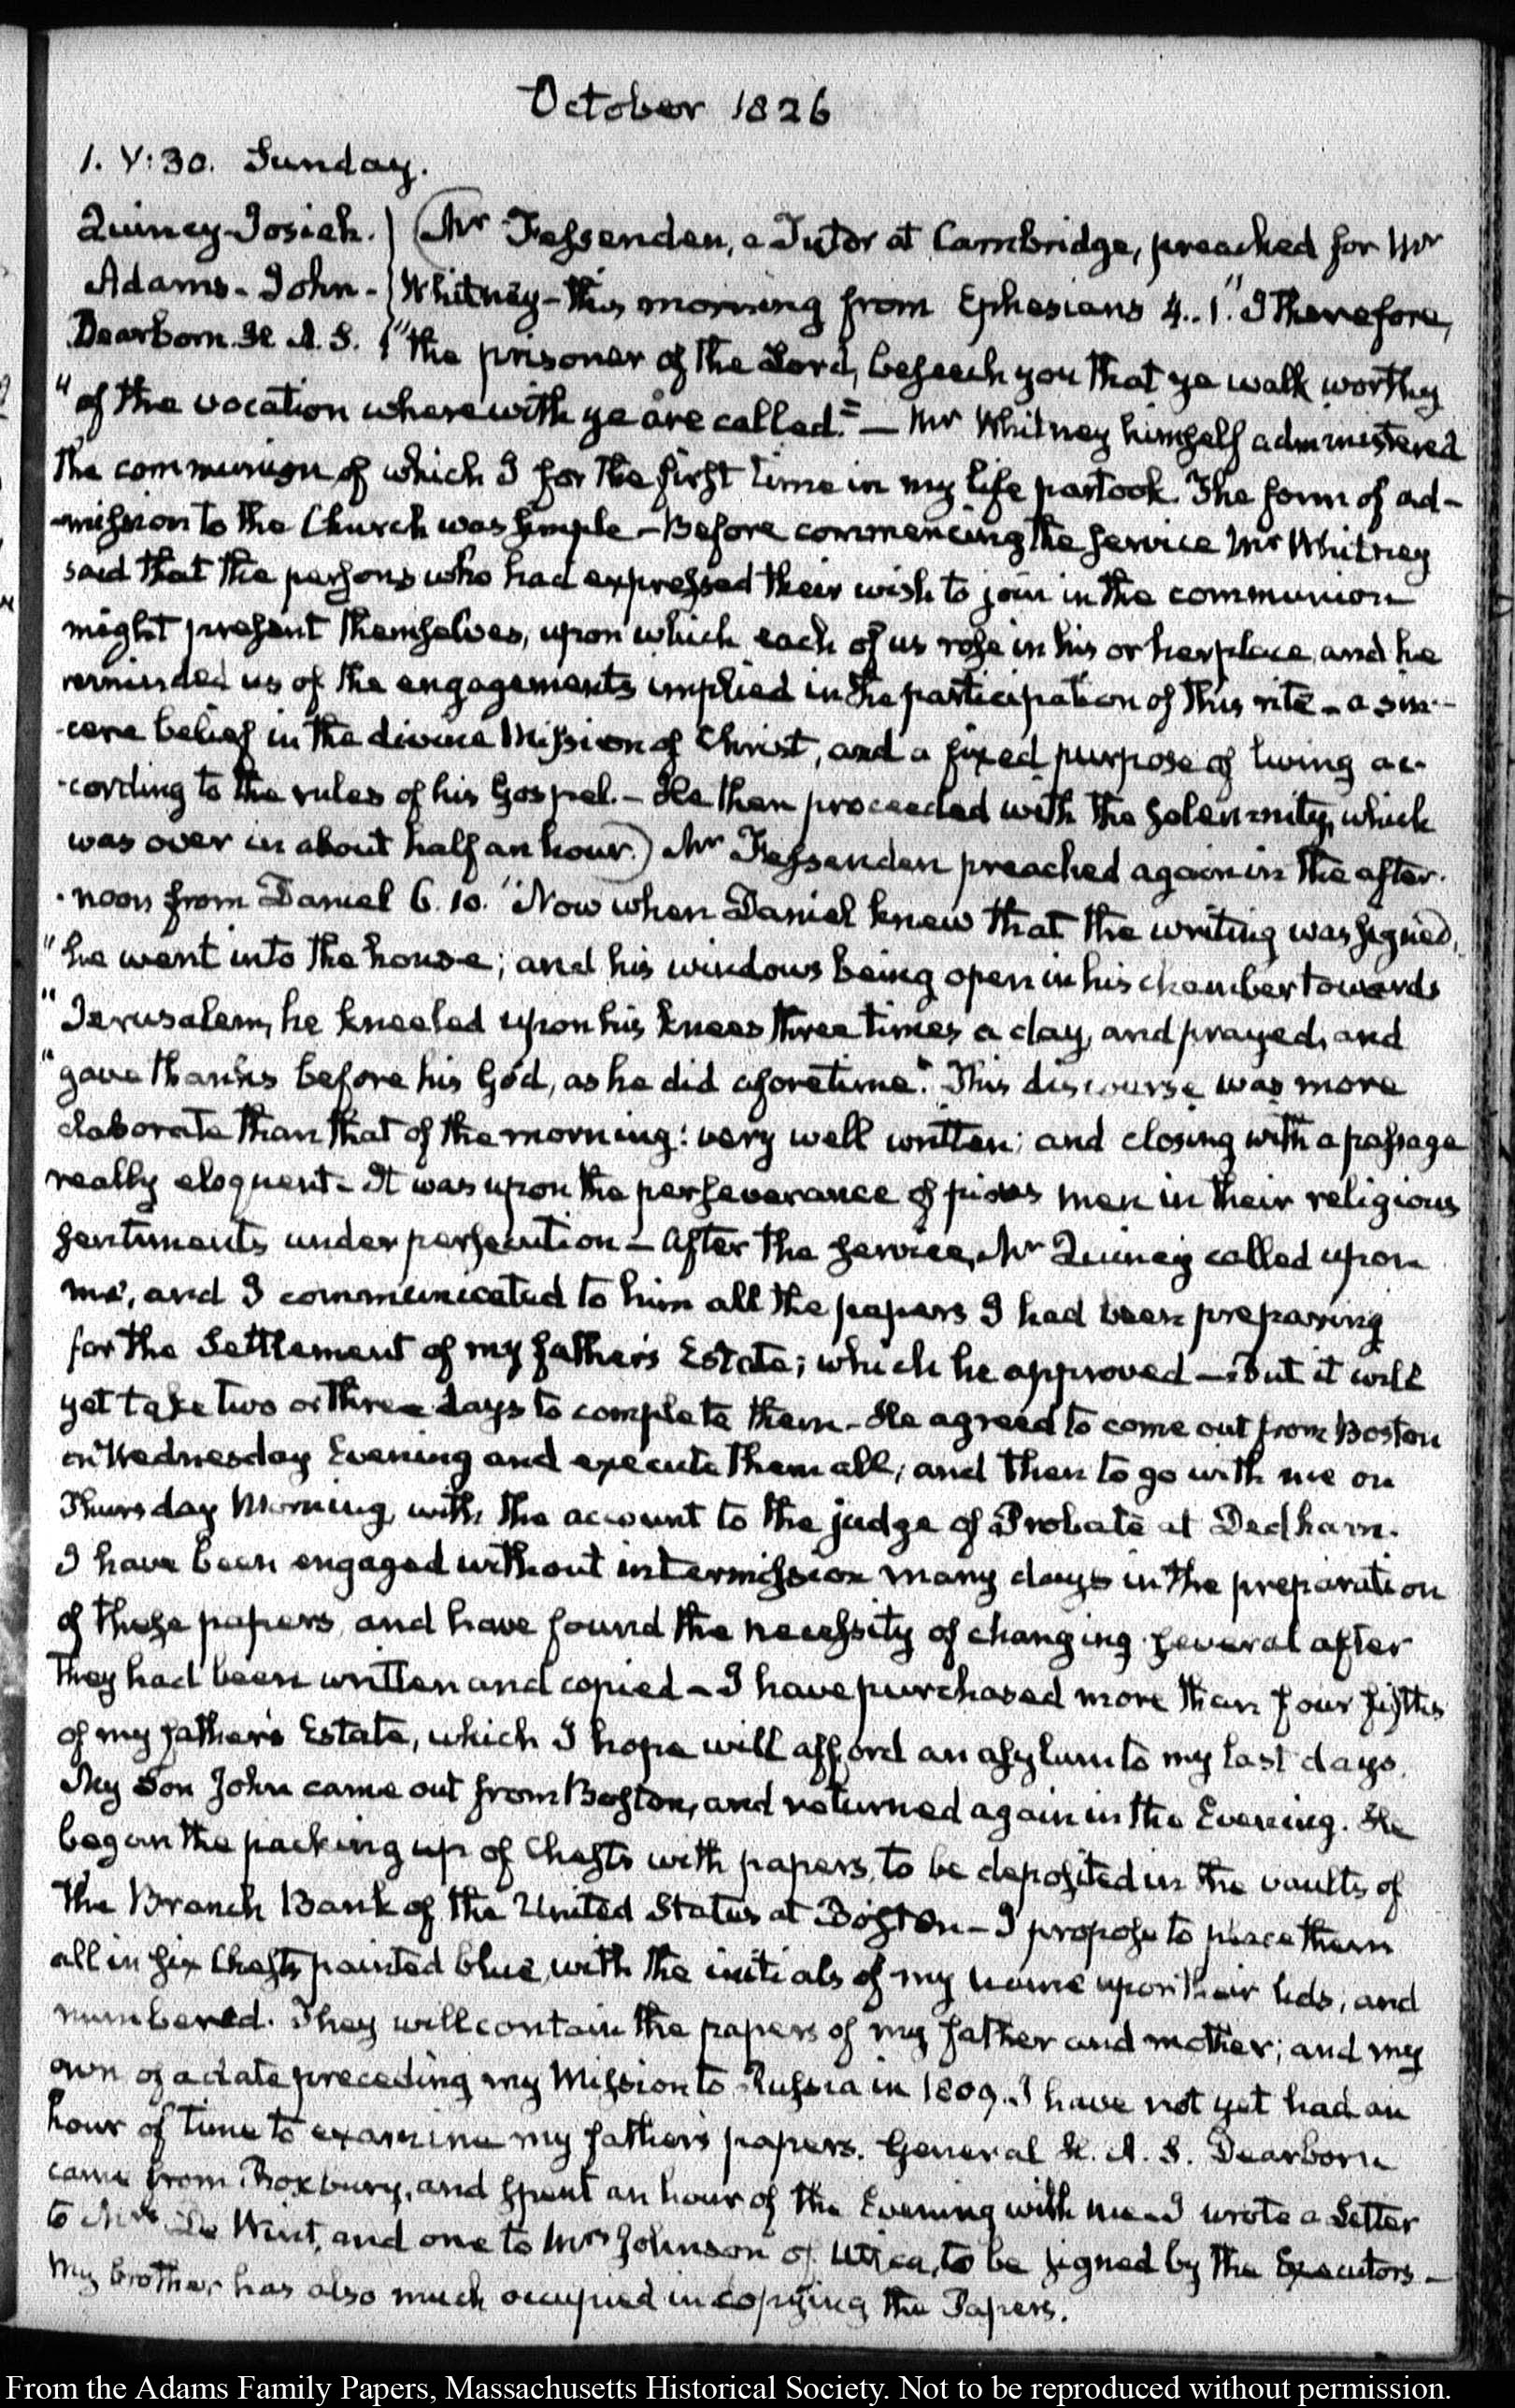 October 1826
1. V:30. Sunday.
Quincy-Josiah. } (Mr Fessenden, a Tutor at Cambridge, preached for Mr
Adams-John- } Whitney-this morning from Ephesians 4..1. "I therefore,
Dearborn. H. A. S. } "the prisoner of the Lord, beseech you that ye walk worthy
"of the vocation wherewith ye are called."— Mr Whitney himself administered
the communion of which I for the first time in my life partook. The form of ad-
-mission to the Church was simple—Before commencing the service Mr Whitney
said that the persons who had expressed their wish to join in the communion
might present themselves, upon which each of us rose in his or her place, and he
reminded us of the engagements implied in the participation of this rite—a sin-
-cere belief in the divine Mission of Christ, and a fixed purpose of living ac-
-cording to the rules of his Gospel.—He then proceeded with the solemnity, which
was over in about half an hour.) Mr Fessenden preached again in the after-
-noon from Daniel 6. 10. "Now when Daniel knew that the writing was signed,
"he went into the house; and his windows being open in his chamber towards
"Jerusalem, he kneeled upon his knees three times a day, and prayed, and
"gave thanks before his God, as he did aforetime." This discourse was more
elaborate than that of the morning: very well written; and closing with a passage
really eloquent—It was upon the perseverance of pious men in their religious
sentiments under persecution—After the service, Mr Quincy called upon
me, and I communicated to him all the papers I had been preparing
for the Settlement of my father's Estate; which he approved—But it will
yet take two or three days to complete them—He agreed to come out from Boston
on Wednesday Evening and execute them all, and then to go with me on
Thursday Morning, with the account to the judge of Probate at Dedham.
I have been engaged without intermission many days in the preparation
of these papers and have found the necessity of changing several after
they had been written and copied—I have purchased more than four fifths
of my father's Estate, which I hope will afford an asylum to my last days.
My Son John came out from Boston, and returned again in the Evening. He
began the packing up of Chests with papers, to be deposited in the vaults of
the Branch Bank of the United States at Boston—I propose to place them
all in six Chests painted blue, with the initials of my name upon their lids, and
numbered. They will contain the papers of my father and mother; and my
own of a date preceding my Mission to Russia in 1809. I have not yet had an
hour of time to examine my father's papers. General H. A. S. Dearborn
came from Roxbury, and spent an hour of the Evening with me—I wrote a Letter
to De Wint, and one to Mrs Johnson of Utica, to be signed by the Executors—
My brother has also much occupied in copying the Papers.
From the Adams Family Papers, Massachusetts Historical Society. Not to be reproduced without permission.